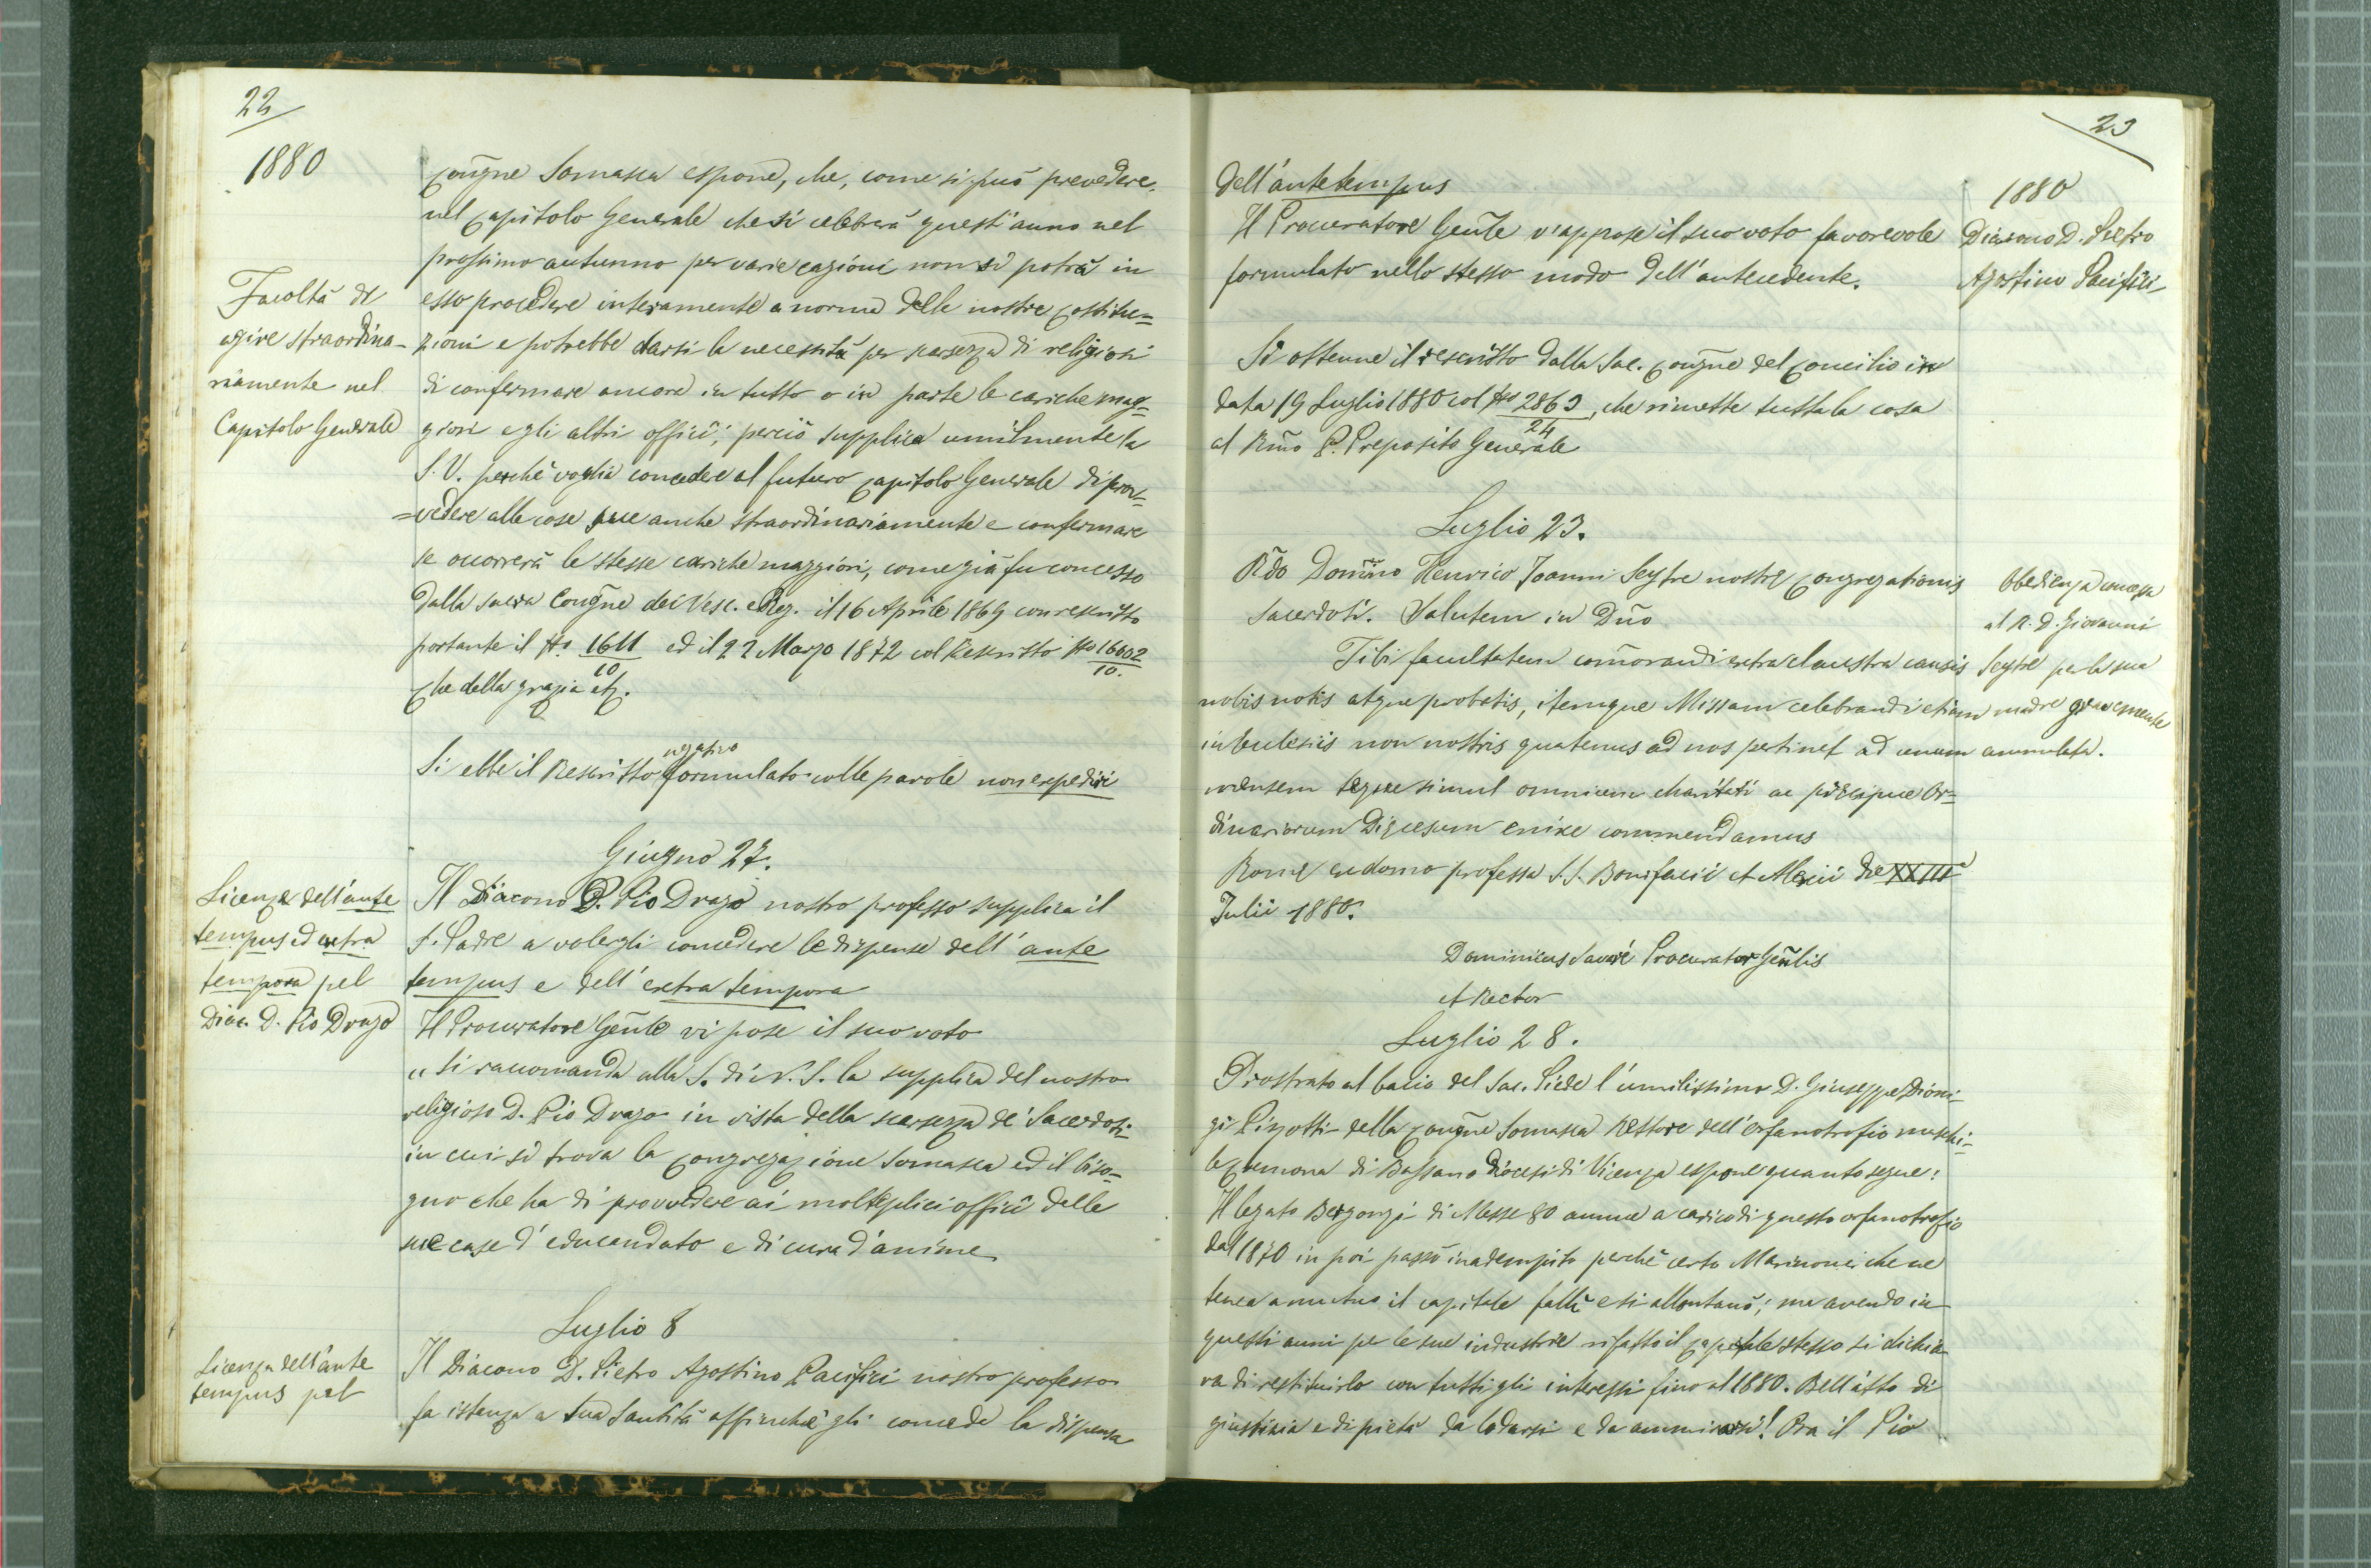 22
1880
Congne Somasca espone, che, come si può prevedere,
nel Capitolo Generale che si celebrerà quest'anno nel
prossimo autunno per varie cagioni non si potrà in
Facoltà di
agire straordina-
riamente nel
Capitolo Generale
esso procedere interamente a norma delle nostre Costitu=
zioni e potrebbe darsi la necessità per scarsezza di religiosi
di confermare ancora in tutto o in parte le cariche mag=
giori e gli altri officî; perciò supplica umilmente la
S. V. perchè voglia concedere al futuro Capitolo Generale di prov=
=vedere alle cose sue anche straordinariamente e confermare
se occorrerà le stesse cariche maggiori, come già fu concesso
dalla sacra Congne dei Vesc. e Reg. il 16 Aprile 1869 con rescritto
portante il No. 1611/10 ed il 22 Marzo 1872 col Rescritto No 16602/10.
Che della grazia etc.
Si ebbe il Rescritto negativo formulato colle parole non expedire
Giugno 27.
Licenza dell'ante
tempus ed extra
tempora pel
Diac. D. Pio Drago
Il Diacono D. Pio Drago nostro professo supplica il
S. Padre a volergli concedere le dispense dell'ante
tempus e dell'extra tempora
Il Procuratore Genle vi pose il suo voto
"Si raccomanda alla S. di N. S. la supplica del nostro
religioso D. Pio Drago in vista della scarsezza de' Sacerdoti
in cui si trova la Congregazione Somasca ed il biso=
gno che ha di provvedere ai molteplici officî delle
sue case d'educandato e di cura d'anime
Luglio 8
Licenza dell'ante
tempus pel
Il Diacono D. Pietro Agostino Pacifici nostro professo
fa istanza a Sua Santità affinchè gli conceda la dispensa
23
1880
dell'ante tempus
Diacono D. Pietro
Agostino Pacifici
Il Procuratore Genle v'appose il suo voto favorevole
formulato nello stesso modo dell'antecedente.
Si ottenne il rescritto dalla Sac. Congne del Concilio in
data 19 Luglio 1880 col No 2863/24, che rimette tutta la cosa
al Rmo P. Preposito Generale
Luglio 23.
Obedienza concessa
al R. D. Giovanni
Seytre per la sua
madre gravemente
ammalata.
Rdo Domino Henrico Joanni Seytre nostræ Congregationis
Sacerdoti. Salutem in Dno
Tibi facultatem commorandi extra claustra causis
nobis notis atque probatis, itemque Missam celebrandi etiam
in Ecclesiis non nostris quatenus ad nos pertinet ad unum
mensem teque simul omnium charitati ac præcipue Or=
dinariorum Diœcesum enixe commendamus
Romæ ex domo professa SS. Bonifacii et Alexii die XXIII
Julii 1880.
Dominicus Savarè Procurator Genlis
et Rector
Luglio 28.
Prostrato al bacio del Sac. Piede l'umilissimo D. Giuseppe Dioni-
gi Pizzotti della Congne Somasca Rettore dell'Orfanotrofio maschi-
le Cremona di Bassano Diocesi di Vicenza espone quanto segue:
Il legato Bergonzi di Messe 80 annue a carico di questo orfanotrofio
dal 1870 in poi passò inadempito perchè certo Marinoni che ne
tenea a mutuo il capitale fallì e si allontanò; ma avendo in
questi anni per le sue industrie rifatto il capitale stesso si dichia
ra di restituirlo con tutti gli interessi fino al 1880. Bell'atto di
giustizia e di pietà da lodarsi e da ammirarsi! Ora il Pio